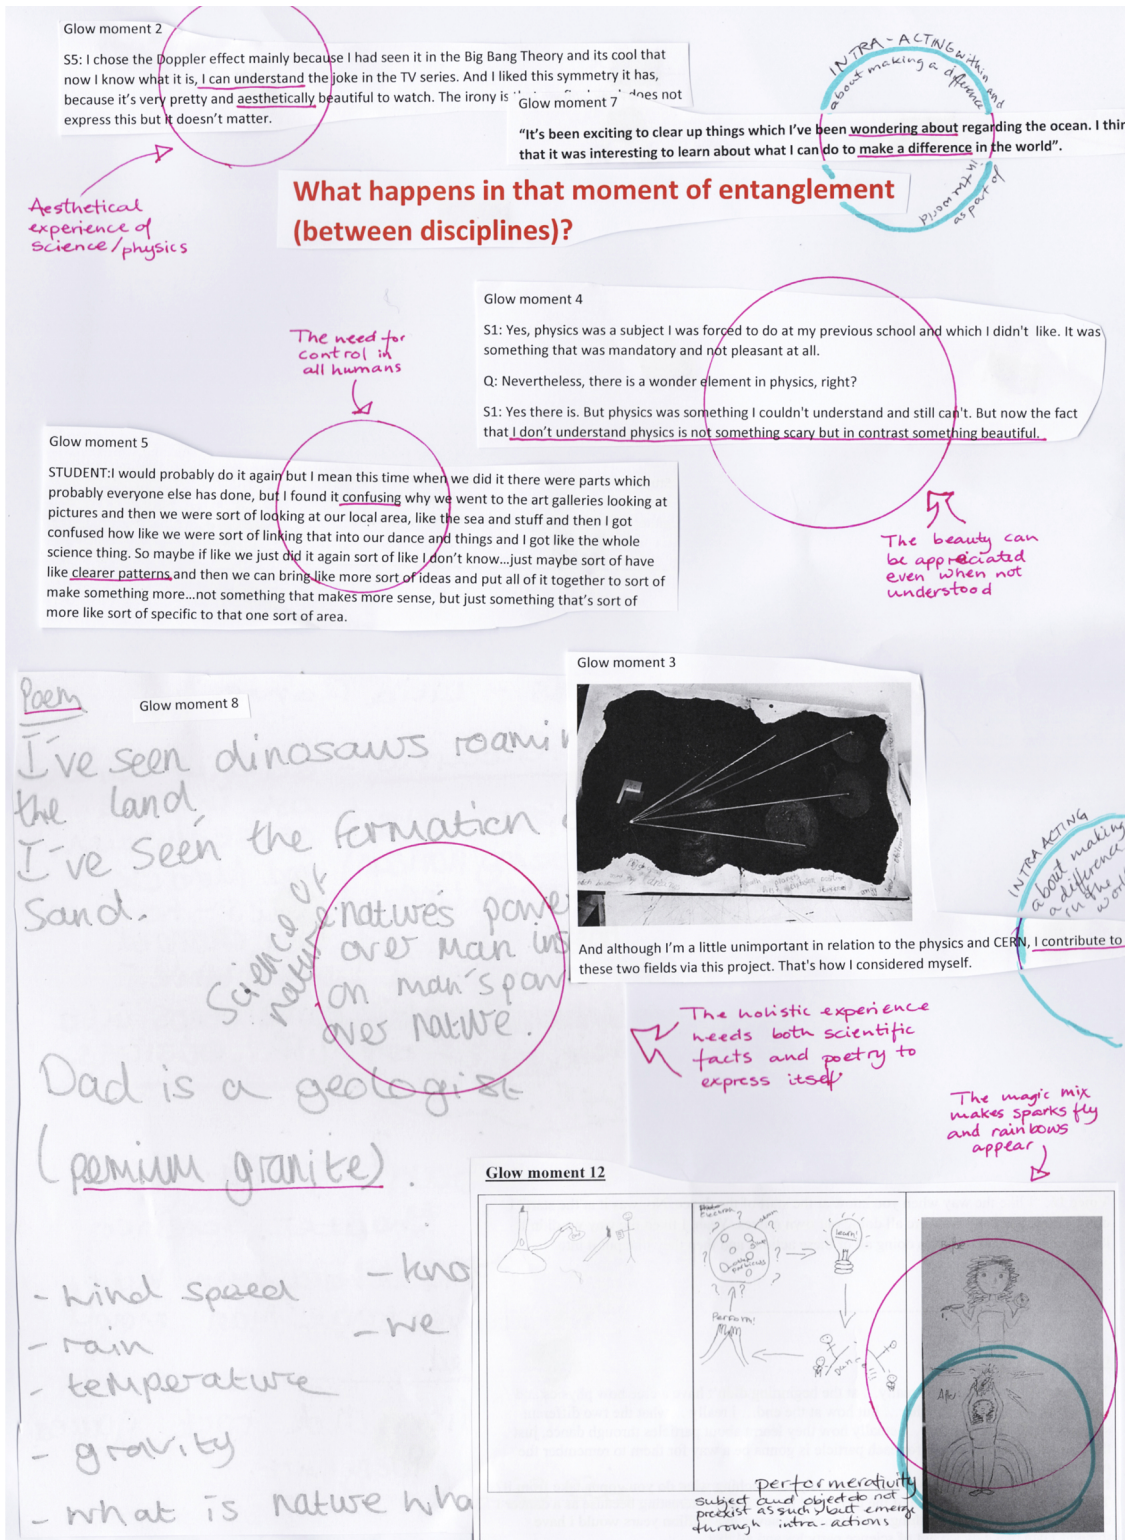 Glow moment 2
S5: I chose the Doppler effect mainly because I had seen it in the Big Bang Theory and its cool that
now I know what it is, I can understand the joke in the TV series. And I liked this symmetry it has,
because it's very pretty and aesthetically beautiful to watch. The irony is does not
express this but it doesn't matter.
INTRA-ACTING within and
about making a difference
Glow moment 7
"It's been exciting to clear up things which I've been wondering about regarding the ocean. I thin
that it was interesting to learn about what I can do to make a difference in the world".
in the world
as part of
Aesthetical
experience of
science/physics
What happens in that moment of entanglement
(between disciplines)?
Glow moment 4
S1: Yes, physics was a subject I was forced to do at my previous school and which I didn't like. It was
something that was mandatory and not pleasant at all.
Q: Nevertheless, there is a wonder element in physics, right?
S1: Yes there is. But physics was something I couldn't understand and still can't. But now the fact
that I don't understand physics is not something scary but in contrast something beautiful.
The need for
control in
all humans
Glow moment 5
STUDENT:I would probably do it again but I mean this time when we did it there were parts which
probably everyone else has done, but I found it confusing why we went to the art galleries looking at
pictures and then we were sort of looking at our local area, like the sea and stuff and then I got
confused how like we were sort of linking that into our dance and things and I got like the whole
science thing. So maybe if like we just did it again sort of like I don't know...just maybe sort of have
like clearer patterns and then we can bring like more sort of ideas and put all of it together to sort of
make something more...not something that makes more sense, but just something that's sort of
more like sort of specific to that one sort of area.
The beauty can
be appreciated
even when not
understood
Glow moment 3
Poem
Glow moment 8
I've seen dinosaws roamin
the land,
I've seen the formation
Sand.
Science of
nature
natures powe
over man ins
on man's pow
over nature.
Dad is a geologist
(pemium granite).
- wind speed
- rain
- temperature
- gravity
- what is nature wha
- kno
- we
And although I'm a little unimportant in relation to the physics and CERN, I contribute to
these two fields via this project. That's how I considered myself.
INTRA ACTING
about making
a difference
in the
worl
The holistic experience
needs both scientific
facts and poetry to
express itself
The magic mix
makes sparks fly
and rainbows
appear
Glow moment 12
Perform!
Learn!
Dance!!!
Before
After
performerativity
subject and object do not
preexist as such, but emerge
through intra-actions